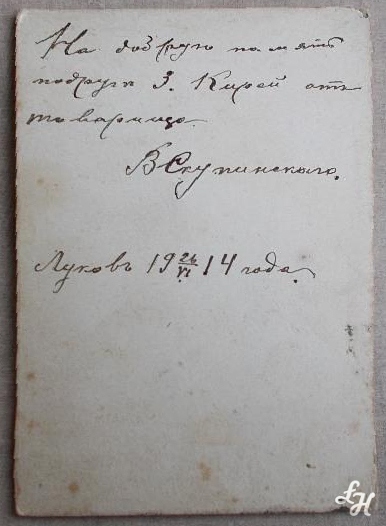 На добрую память
подруги З. Кирей отъ
товарища.
В Скупинского.
Луковъ 19 26/VI 14 года.
ŁH